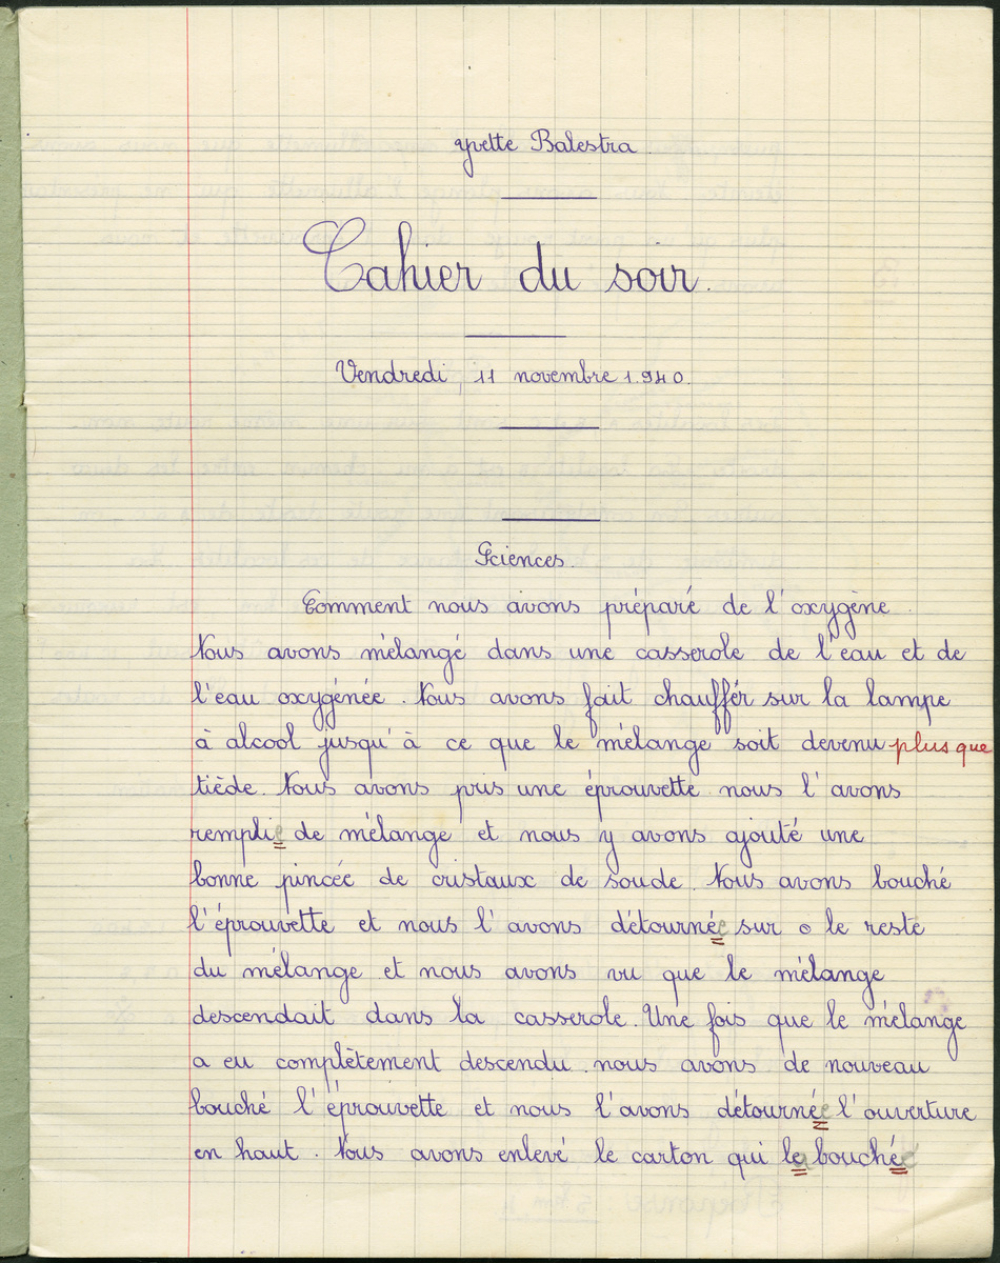 yvette Balestra
Cahier du soir.
Vendredi, 11 novembre 1.940.
Sciences.
Comment nous avons préparé de l'oxygène
Nous avons mélangé dans une casserole de l'eau et de
l'eau oxygénée. Nous avons fait chauffér sur la lampe
à alcool jusqu'à ce que le mélange soit devenu plus que
tiède. Nous avons pris une éprouvette nous l'avons
remplie de mélange et nous y avons ajouté une
bonne pincée de cristaux de soude. Nous avons bouché
l'éprouvette et nous l'avons détournée sur o le reste
du mélange et nous avons vu que le mélange
descendait dans la casserole. Une fois que le mélange
a eu complètement descendu. nous avons de nouveau
bouché l'éprouvette et nous l'avons détournée l'ouverture
en haut. Nous avons enlevé le carton qui la bouché